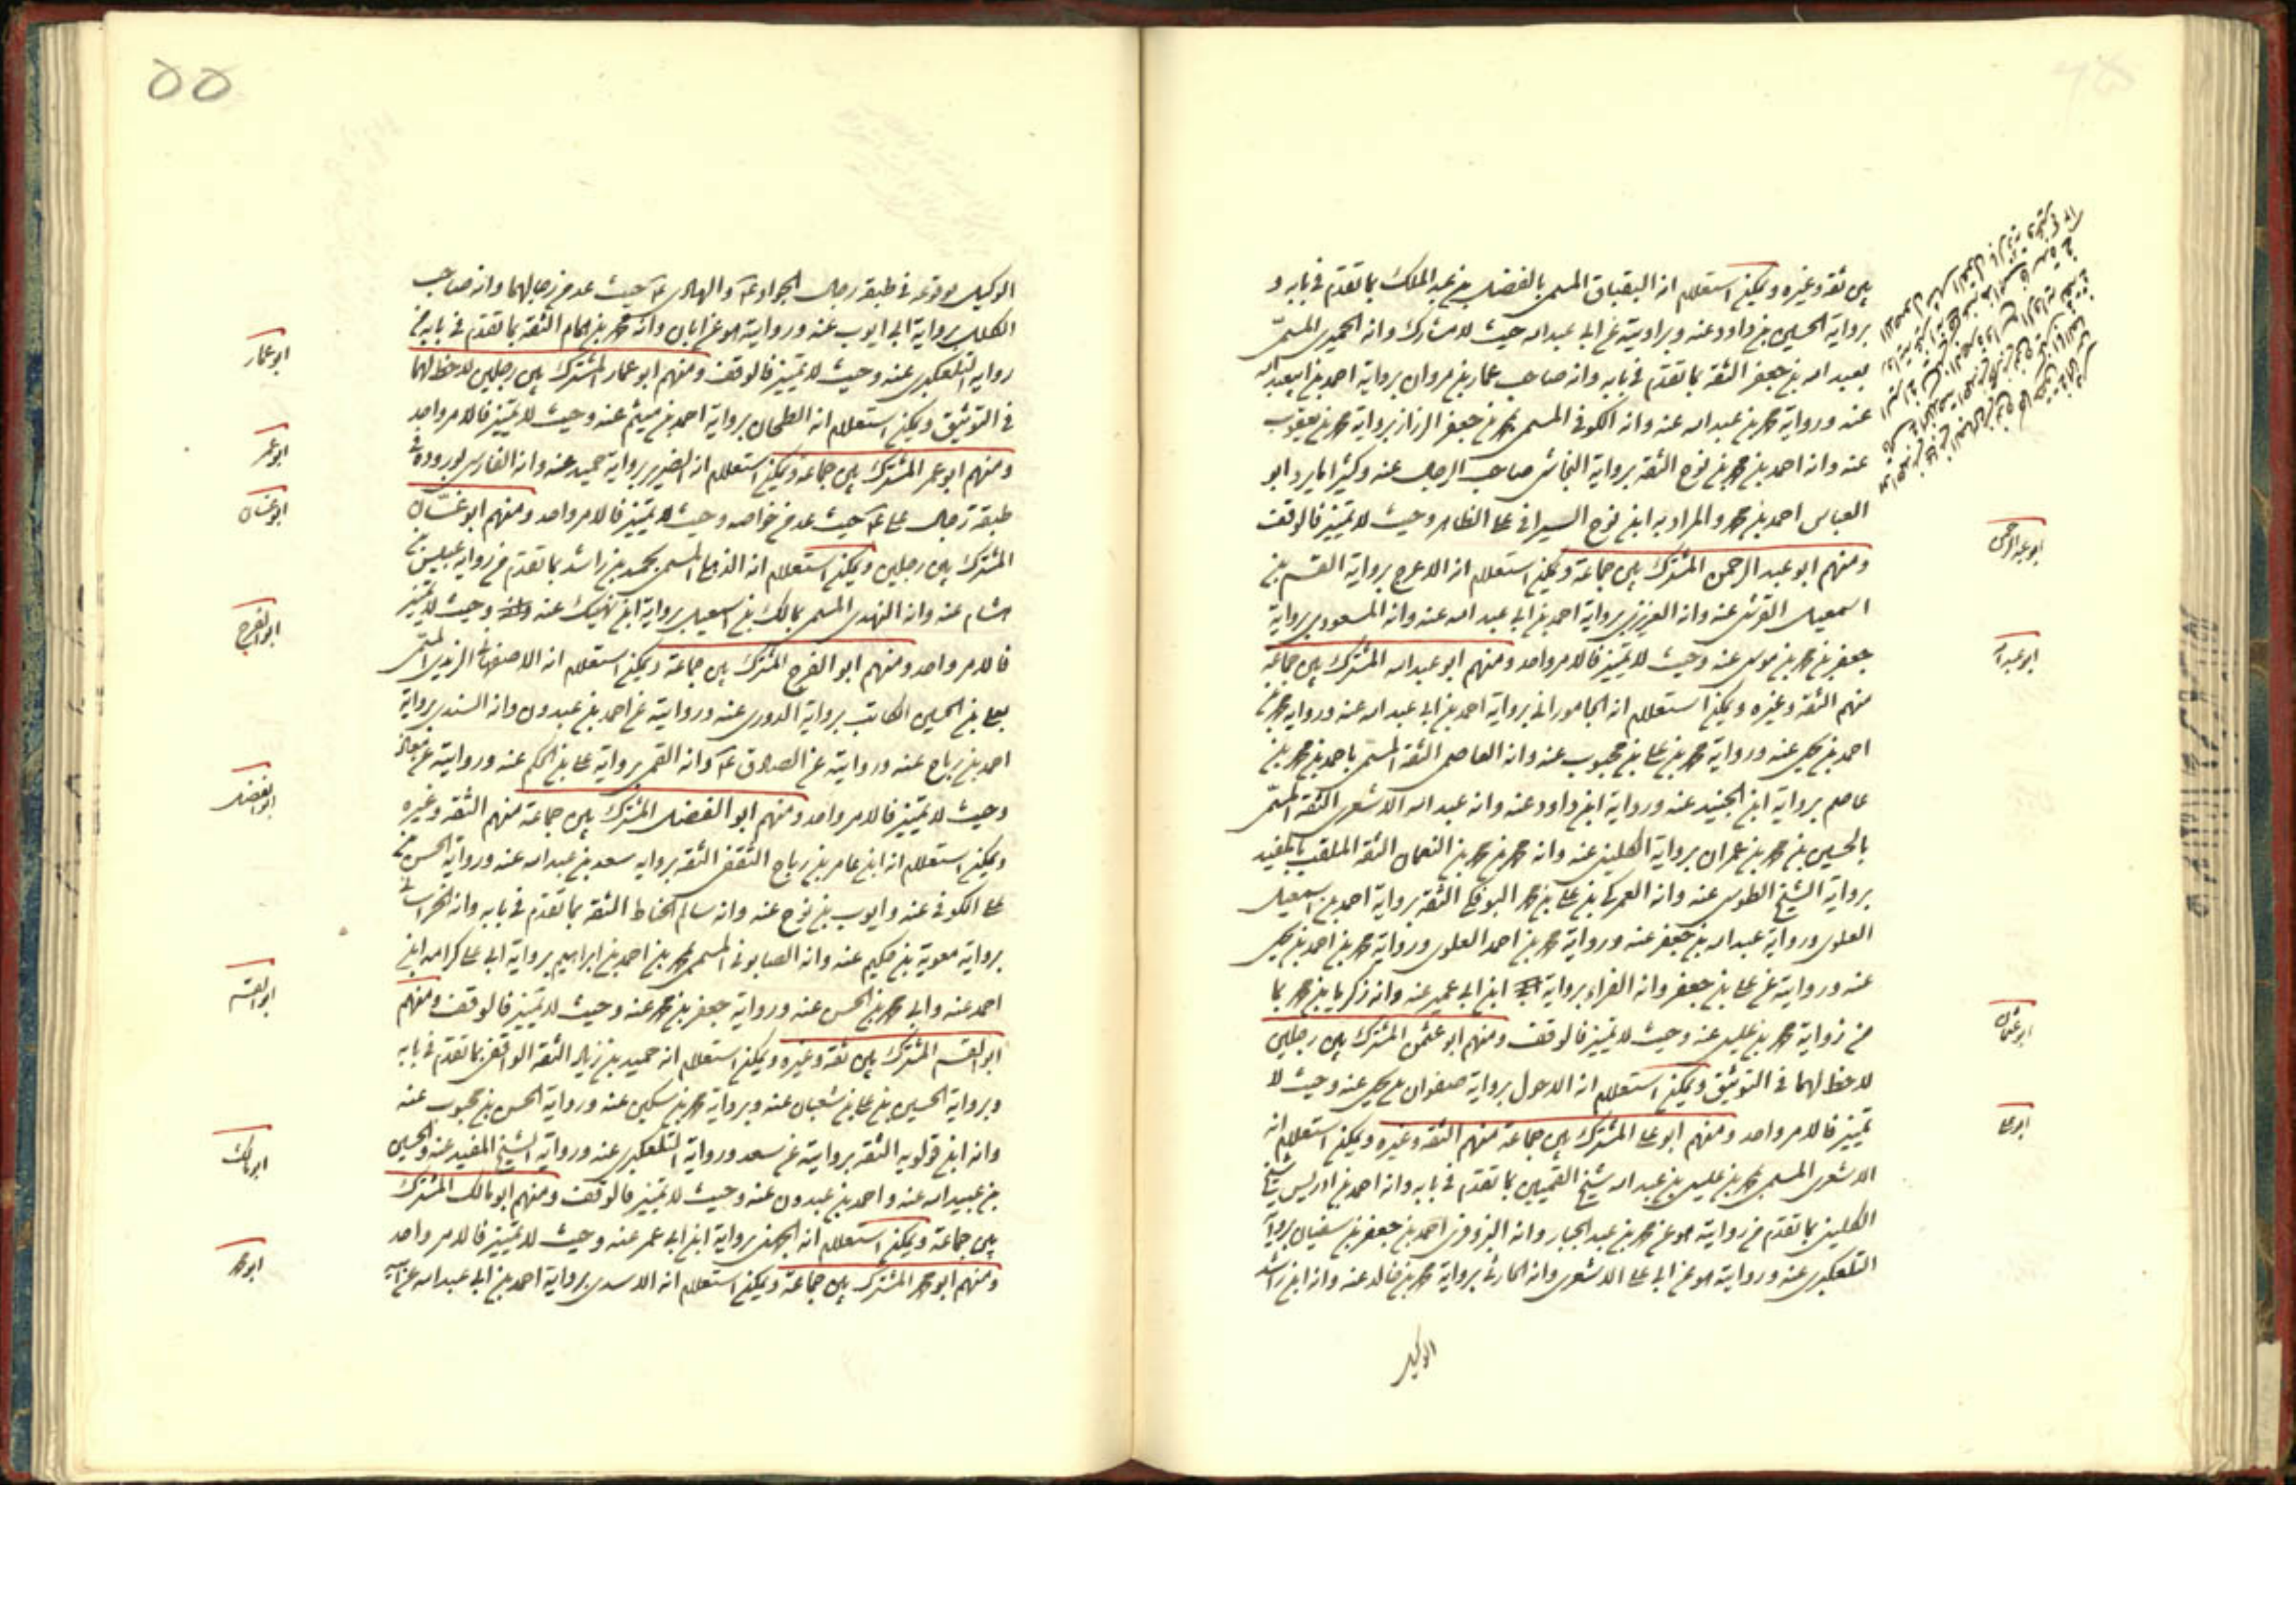 بين ثقة وغيره ويمكن استعلام انه البقباق المسمى بالفضل بن عبد الملك بما تقدم في بابه و
برواية الحسين بن داود عنه وبروايته عن ابي عبد الله حيث لا مشارك وانه الحميري المسمى
بعبد الله بن جعفر الثقة بما تقدم في بابه وانه صاحب عمار بن مروان برواية احمد بن ابي عبد الله
عنه ورواية محمد بن عبد الله عنه وانه الكوفي المسمى محمد بن جعفر الرزاز برواية محمد بن يعقوب
عنه وانه احمد بن محمد بن نوح الثقة برواية النجاشي صاحب الرجال عنه وكثيرا ما يرد ابو
العباس احمد بن محمد والمراد به ابن نوح السيرافي على الظاهر وحيث لا تمييز فالوقف
ومنهم ابو عبد الرحمن المشترك بين جماعة ويمكن استعلام انه الاعرج برواية القسم بن
اسمعيل القرشي عنه وانه العزرمي برواية احمد بن ابي عبد الله عنه وانه المسعودي برواية
جعفر بن محمد بن موسى عنه وحيث لا تمييز فالامر واحد ومنهم ابو عبد الله المشترك بين جماعة
منهم الثقة وغيره ويمكن استعلام انه الجاموراني برواية احمد بن ابي عبد الله عنه ورواية محمد بن
احمد بن يحيى عنه ورواية محمد بن علي بن محبوب عنه وانه العاصمي الثقة المسمى باحمد بن محمد بن
عاصم برواية ابن الجنيد عنه ورواية ابن داود عنه وانه عبد الله الاشعري الثقة المسمى
بالحسين بن محمد بن عمران برواية الكليني عنه وانه محمد بن محمد بن النعمان الثقة الملقب بالمفيد
برواية الشيخ الطوسي عنه وانه العمركي بن علي بن محمد البوفكي الثقة برواية احمد بن اسمعيل
العلوي ورواية عبد الله بن جعفر عنه ورواية محمد بن احمد العلوي ورواية محمد بن احمد بن يحيى
عنه وروايته عن علي بن جعفر وانه الفراء برواية ابن ابي عمير عنه وانه زكريا بن محمد بما
من رواية محمد بن عيسى عنه وحيث لا تمييز فالوقف ومنهم ابو عثمن المشترك بين رجلين
لا حظ لهما في التوثيق ويمكن استعلام انه الاحول برواية صفوان بن يحيى عنه وحيث لا
تمييز فالامر واحد ومنهم ابو علي المشترك بين جماعة منهم الثقة وغيره ويمكن استعلام انه
الاشعري المسمى محمد بن عيسى بن عبد الله شيخ القميين بما تقدم في بابه وانه احمد بن ادريس شيخ
الكليني بما تقدم من روايته هو عن محمد بن عبد الجبار وانه البزوفري احمد بن جعفر بن سفيان برواية
التلعكبري عنه وروايته هو عن ابي علي الاشعري وانه الحارثي برواية محمد بن خالد عنه وانه ابن راشد
الوكيل
ابو عبد الرحمن
ابو عبد الله
ابو عثمان
ابو علي
٥٥
الوكيل بوقوعه في طبقة رجال الجواد ع والهادي ع حيث عد من رجالهما وانه صاحب
الكلل برواية ابي ايوب عنه وروايته هو عن ابان وانه محمد بن همام الثقة بما تقدم في بابه من
رواية التلعكبري عنه وحيث لا تمييز فالوقف ومنهم ابو عمار المشترك بين رجلين لا حظ لهما
في التوثيق ويمكن استعلام انه الطحان برواية احمد بن ميثم عنه وحيث لا تمييز فالامر واحد
ومنهم ابو عمر المشترك بين جماعة ويمكن استعلام انه الضرير برواية حميد عنه وانه الفارسي بوروده في
طبقة رجال علي ع حيث عد من خواصه وحيث لا تمييز فالامر واحد ومنهم ابو غسّان
المشترك بين رجلين ويمكن استعلام انه الذهلي المسمى بحميد بن راشد بما تقدم من رواية عبيس بن
هشام عنه وانه النهدي المسمى بمالك بن اسمعيل برواية ابن نهيك عنه وحيث لا تمييز
فالامر واحد ومنهم ابو الفرج المشترك بين جماعة ويمكن استعلام انه الاصفهاني الزيدي المسمى
بعلي بن الحسين الكاتب برواية الدوري عنه وروايته عن احمد بن عبدون وانه السندي برواية
احمد بن رباح عنه وروايته عن الصادق ع وانه القمي برواية علي بن الحكم عنه وروايته عن معاذ
وحيث لا تمييز فالامر واحد ومنهم ابو الفضل المشترك بين جماعة منهم الثقة وغيره
ويمكن استعلام انه ابن عامر بن رباح الثقفي الثقة برواية سعد بن عبد الله عنه ورواية الحسن بن
علي الكوفي عنه وايوب بن نوح عنه وانه سالم الحناط الثقة بما تقدم في بابه وانه الخراساني
برواية معوية بن حكيم عنه وانه الصابوني المسمى محمد بن احمد بن ابراهيم برواية ابي علي كرامة ابن
احمد عنه وابي محمد بن الحسن عنه ورواية جعفر بن محمد عنه وحيث لا تمييز فالوقف ومنهم
ابو القسم المشترك بين ثقة وغيره ويمكن استعلام انه حميد بن زياد الثقة الواقفي بما تقدم في بابه
وبرواية الحسين بن علي بن شعبان عنه وبرواية محمد بن سكين عنه ورواية الحسن بن محبوب عنه
وانه ابن قولويه الثقة بروايته عن سعد ورواية التلعكبري عنه ورواية الشيخ المفيد عنه والحسين
بن عبيد الله عنه واحمد بن عبدون عنه وحيث لا تمييز فالوقف ومنهم ابو مالك المشترك
بين جماعة ويمكن استعلام انه الجهني برواية ابن ابي عمر عنه وحيث لا تمييز فالامر واحد
ومنهم ابو محمد المشترك بين جماعة ويمكن استعلام انه الاسدي برواية احمد بن ابي عبد الله عن ابيه
ابو عمار
ابو عمر
ابو غسان
ابو الفرج
ابو الفضل
ابو القسم
ابو مالك
ابو محمد